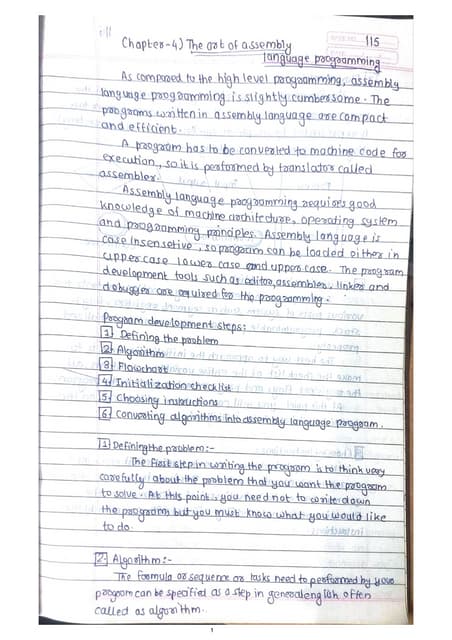 Chapter-4) The art of assembly
115
language programming
As compared to the high level programming, assembly
language programming is slightly cumbersome. The
programs written in assembly language are compact
and efficient.
A program has to be converted to machine code for
execution, so it is performed by translator called
assembler.
Assembly language programming requires good
knowledge of machine architecture, operating system
and programming principles. Assembly language is
case insensetive, so program can be loaded either in
uppercase lower case and upper case. The program
development tools such as editor, assembler, linker and
debugger are required for the programming.
Program development steps:
1) Defining the problem
2) Algorithm
3) Flowchart
4) Initialization checklist
5) Choosing instructions
6) Converting algorithms into assembly language program.
1) Defining the problem:-
The first step in writing the program is to think very
carefully about the problem that you want the program
to solve. At this point, you need not to write down
the program but you must know what you would like
to do.
2. Algorithm:-
The formula or sequence or tasks need to performed by your
program can be specified as a step in general english often
called as algorithm.
1